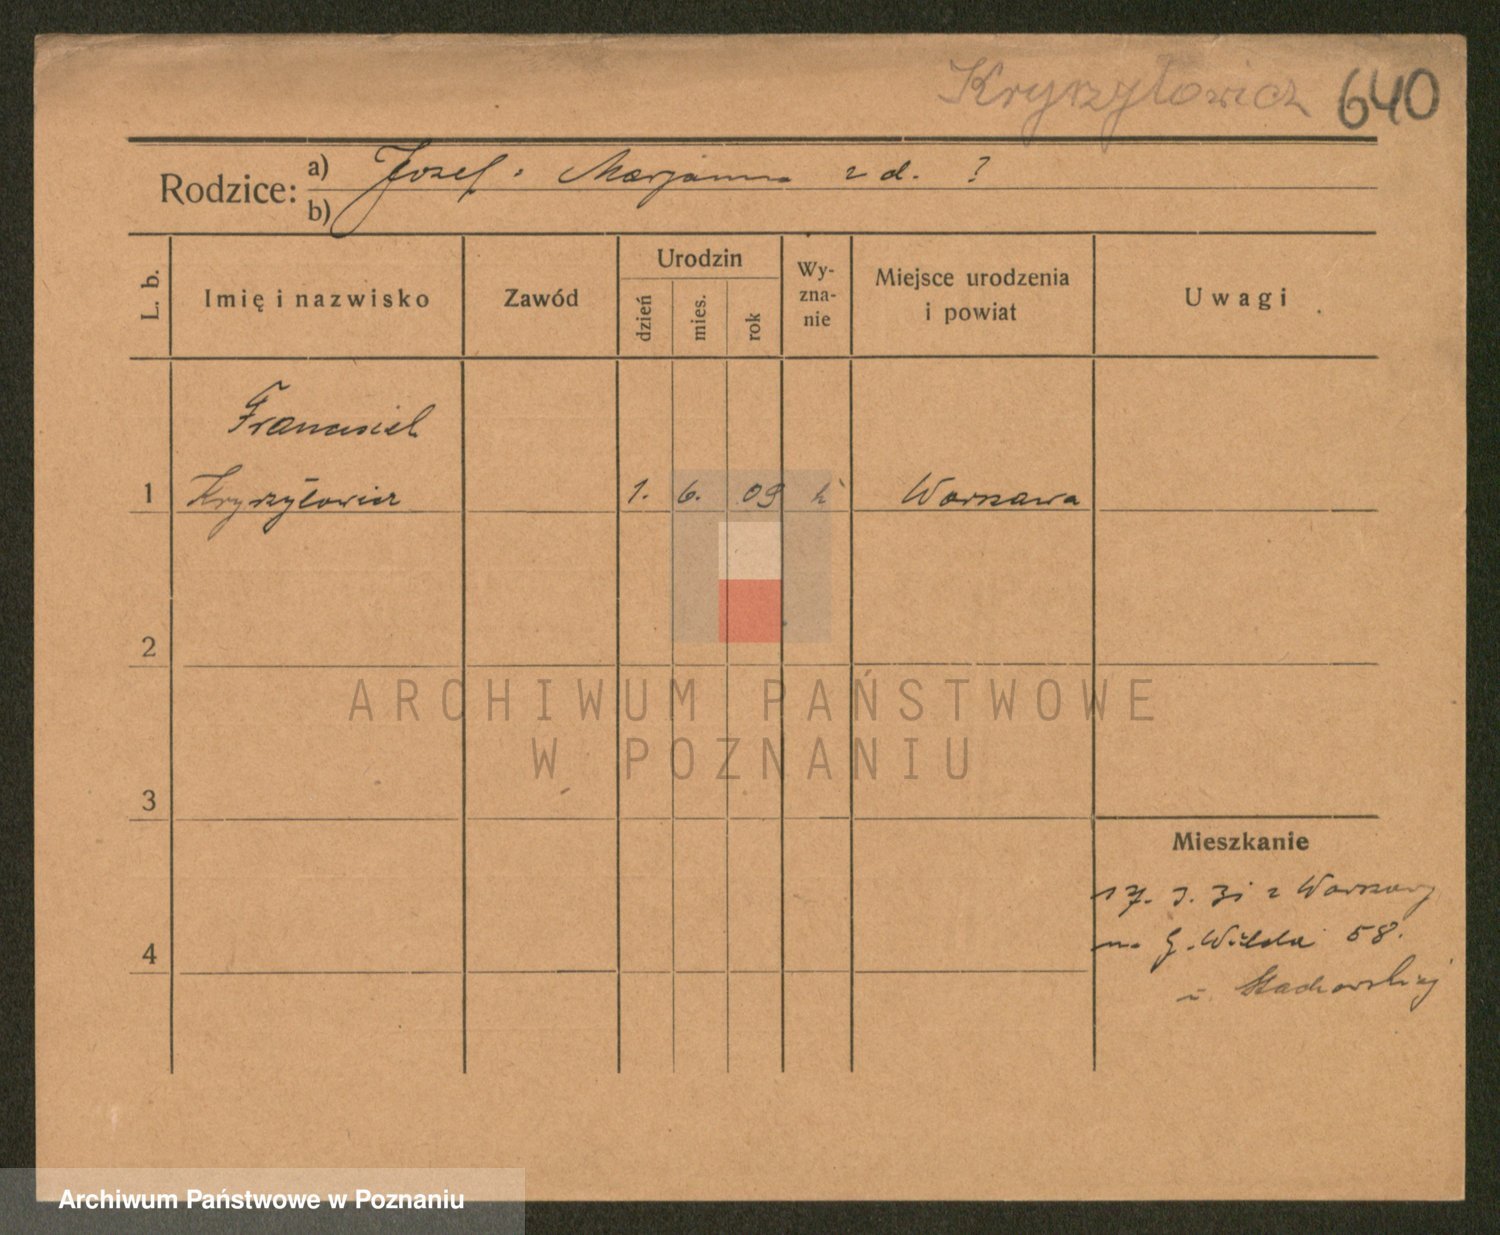 Kryszyłowicz 640
Rodzice: a) Jozef i Marjanna z d. ?
b)
L. b.
Imię i nazwisko
Zawód
Urodzin
dzień
mies.
rok
Wy-
zna-
nie
Miejsce urodzenia
i powiat
Uwagi
Franciszek
1 Kryszyłowicz 1. 6. 09 k Warszawa
2
ARCHIWUM PAŃSTWOWE
W POZNANIU
3
Mieszkanie
17. 3. 31 z Warszawy
4 G. Wilda 58.
u. Stachowskiej
Archiwum Państwowe w Poznaniu